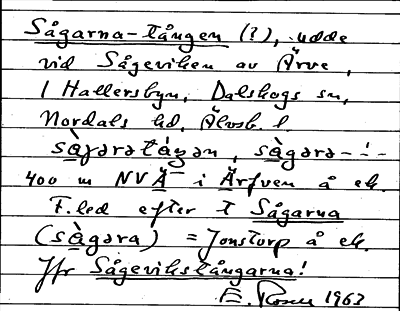 Sågarna-tången (?), udde
vid Sågeviken av Ärve,
i Hallersbyn, Dalskogs sn,
Nordals hd, Älvsb. l.
sàgaratáŋən, sàgara-´-
400 m NV Ä i Ärfven å ek.
F.led efter t Sågarna
(sàgəra) = Jonstorp å ek.
Jfr Sågevikstångarna!
E. Rosen 1963